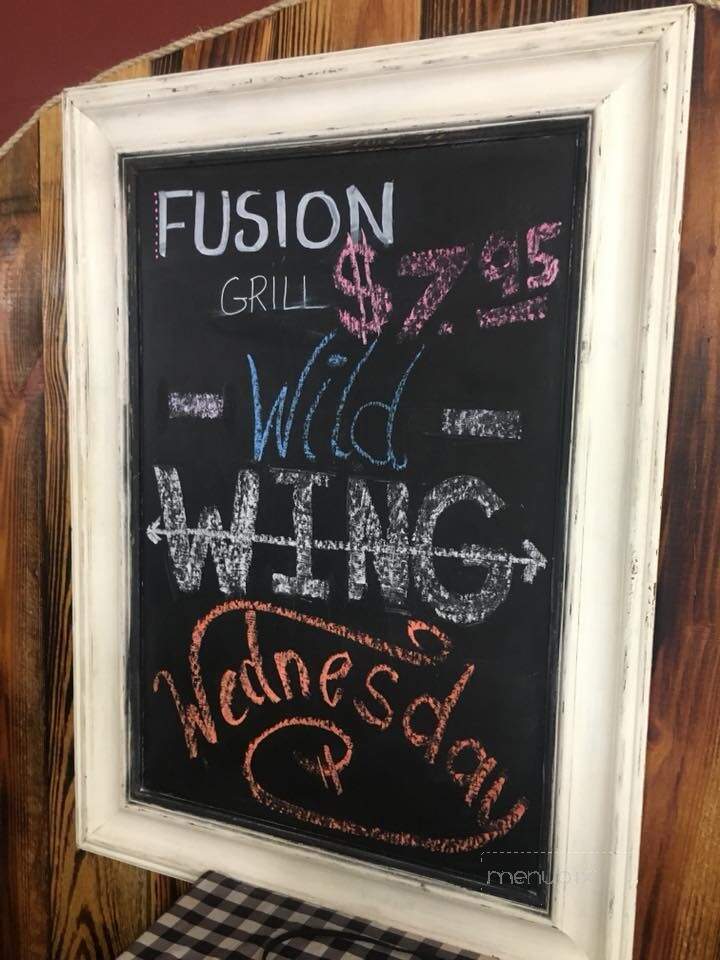 FUSION
GRILL $7.95
- Wild -
WING
Wednesday
menupix